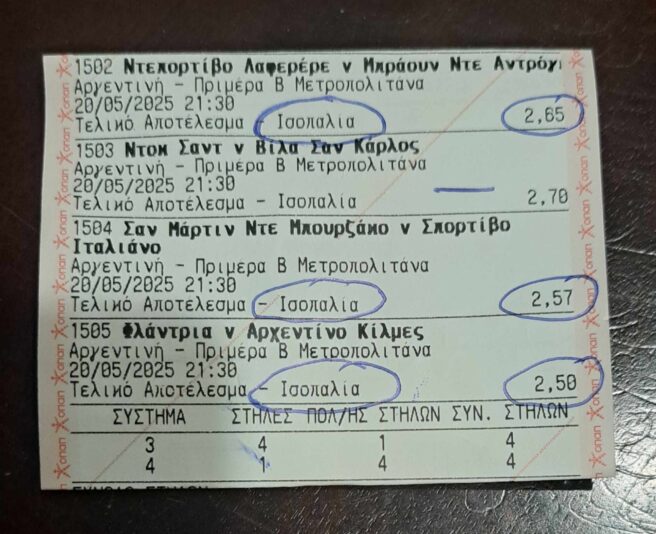 1502 Ντεπορτίβο Λαφερέρε v Μπράουν Ντε Αντρόγι
Αργεντινή - Πριμέρα Β Μετροπολιτάνα
20/05/2025 21:30
Τελικό Αποτέλεσμα - Ισοπαλία 2,65
1503 Ντοκ Σαντ v Βίλα Σαν Κάρλος
Αργεντινή - Πριμέρα Β Μετροπολιτάνα
20/05/2025 21:30
Τελικό Αποτέλεσμα - Ισοπαλία 2,70
1504 Σαν Μάρτιν Ντε Μπουρζάκο v Σπορτίβο
Ιταλιάνο
Αργεντινή - Πριμέρα Β Μετροπολιτάνα
20/05/2025 21:30
Τελικό Αποτέλεσμα - Ισοπαλία 2,57
1505 Φλάντρια v Αρχεντίνο Κίλμες
Αργεντινή - Πριμέρα Β Μετροπολιτάνα
20/05/2025 21:30
Τελικό Αποτέλεσμα - Ισοπαλία 2,50
ΣΥΣΤΗΜΑ ΣΤΗΛΕΣ ΠΟΛ/ΗΣ ΣΤΗΛΩΝ ΣΥΝ. ΣΤΗΛΩΝ
3 4 1 4
4 1 4 4